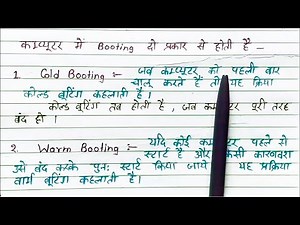 कम्प्यूटर में Booting दो प्रकार से होती है –
1. Cold Booting :- जब कम्प्यूटर को पहली बार
चालू करते हैं तो यह क्रिया
कोल्ड बूटिंग कहलाती है।
कोल्ड बूटिंग तब होती है, जब कम्प्यूटर पूरी तरह
बंद हो।
2. Warm Booting :- यदि कोई कम्प्यूटर पहले से
स्टार्ट है और किसी कारणवश
उसे बंद करके पुनः स्टार्ट किया जाये यह प्रक्रिया
वार्म बूटिंग कहलाती है।